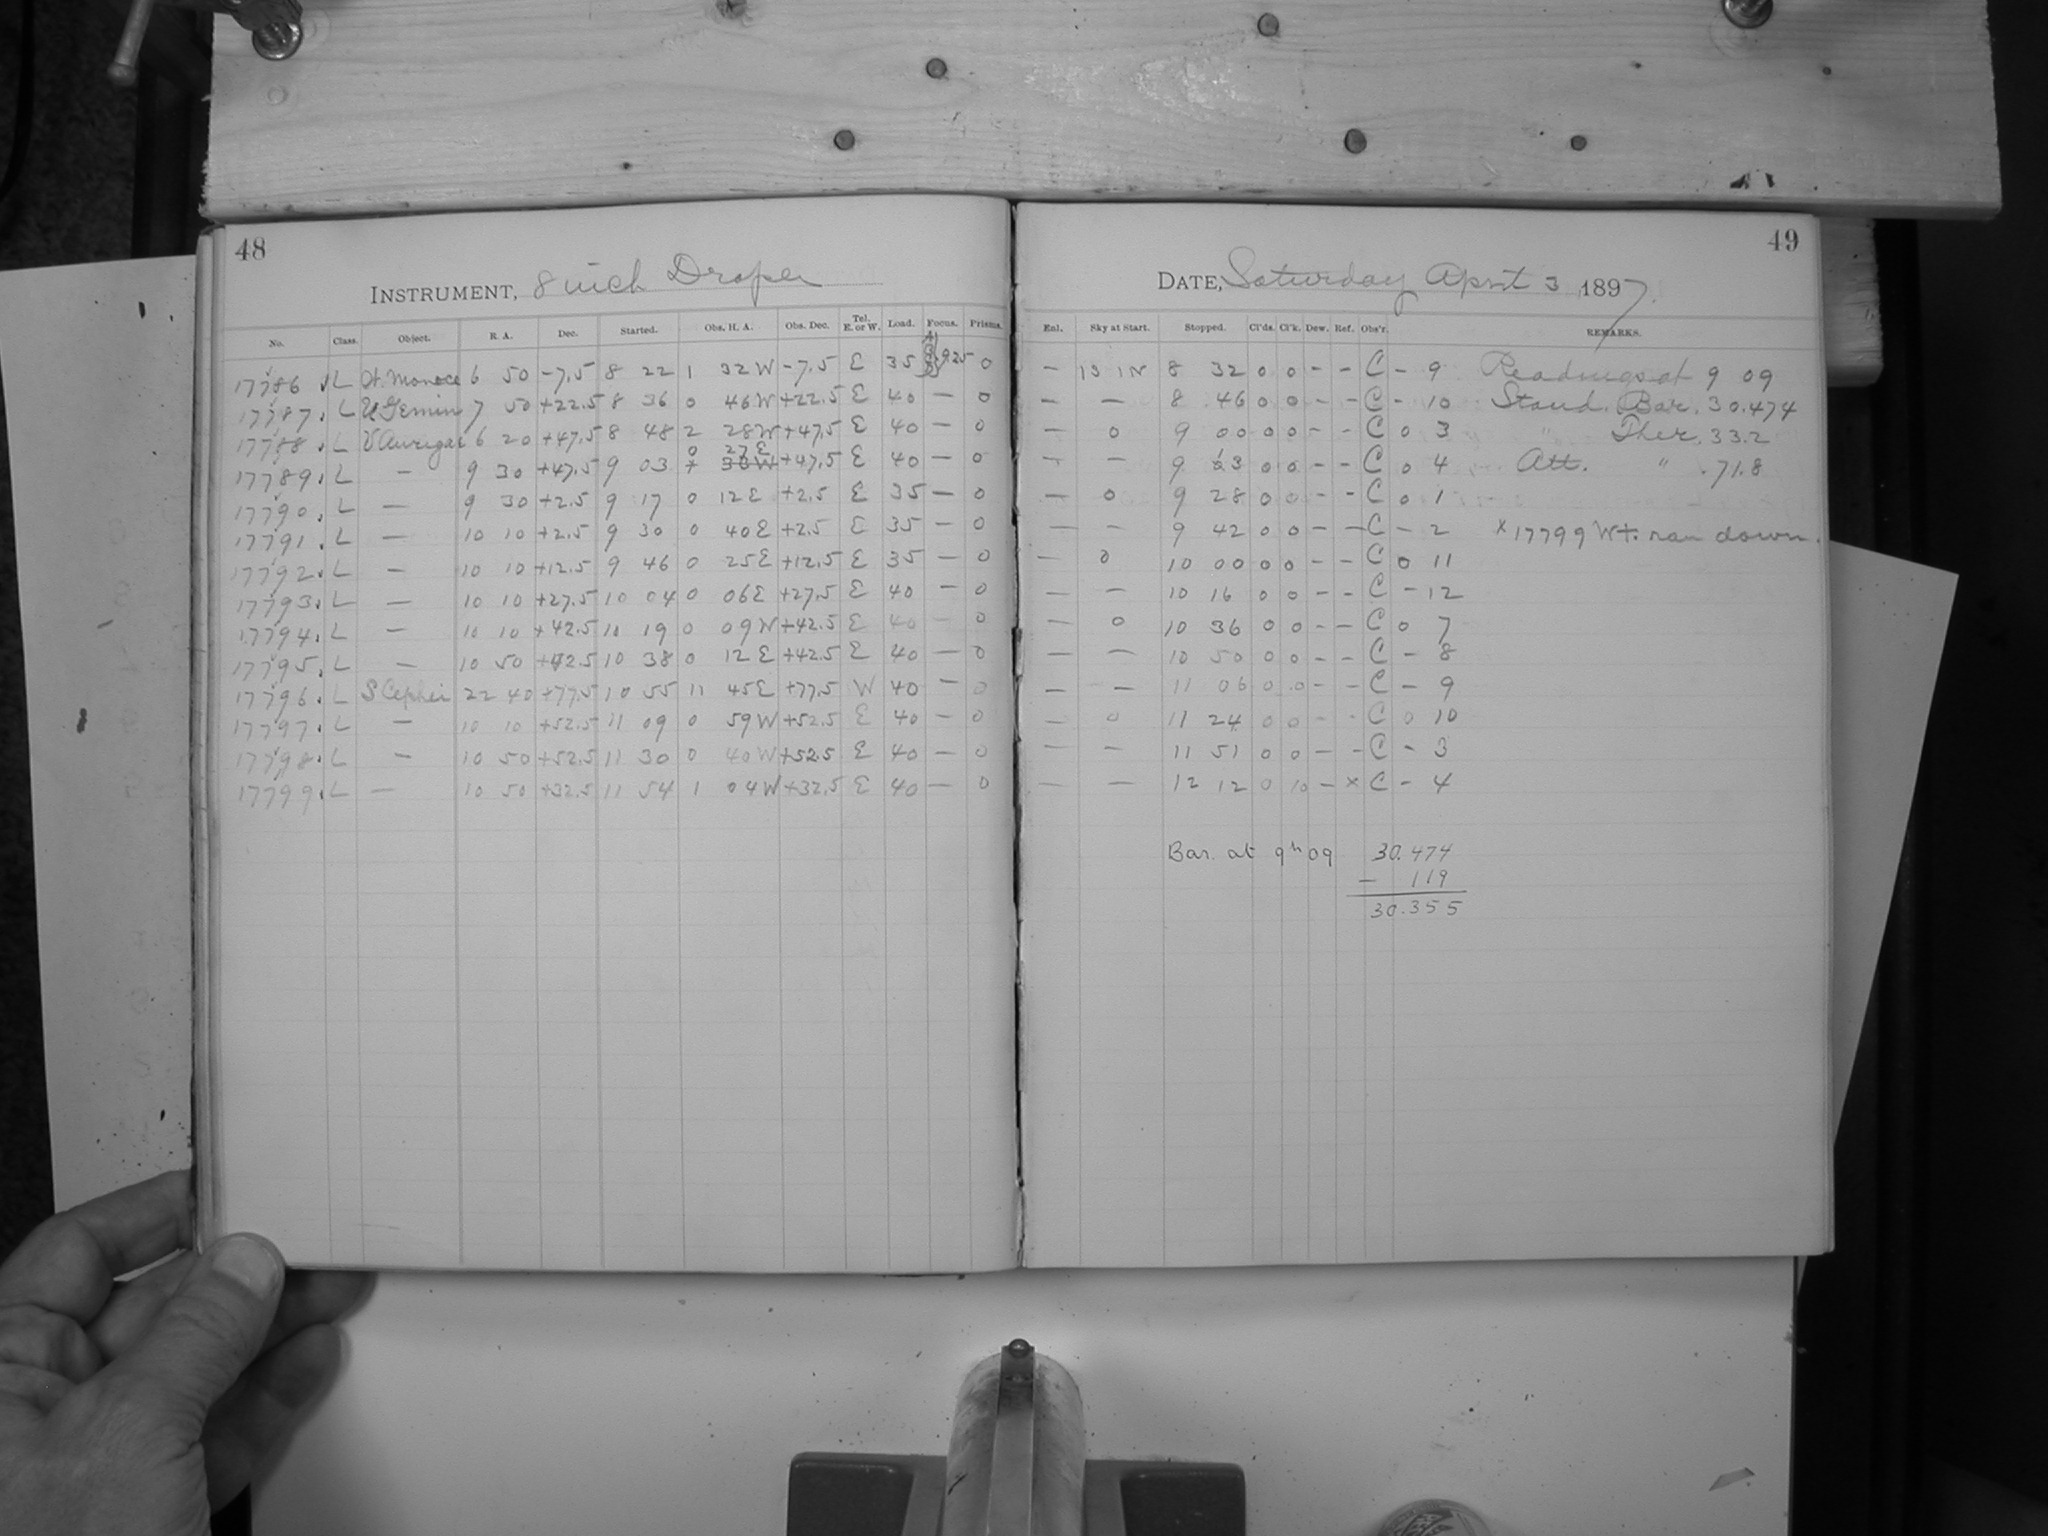 48
INSTRUMENT, 8 inch Draper
No. Class. Object. R. A. Dec. Started. Obs. H. A. Obs. Dec. Tel. E. or W. Load. Focus. Prisms.
17786 L 6 50 -7.5 8 22 1 32 W -7.5 E 35 925 0
17787 L U Gemin 7 50 +22.5 8 36 0 46 W +22.5 E 40 — 0
17788 L V Aurigae 6 20 +47.5 8 48 2 28 W +47.5 E 40 — 0
0 27 E
17789 L — 9 30 +47.5 9 03 +47.5 E 40 — 0
17790 L — 9 30 +2.5 9 17 0 12 E +2.5 E 35 — 0
17791 L — 10 10 +2.5 9 30 0 40 E +2.5 E 35 — 0
17792 L — 10 10 +12.5 9 46 0 25 E +12.5 E 35 — 0
17793 L — 10 10 +27.5 10 04 0 06 E +27.5 E 40 — 0
17794 L — 10 10 +42.5 10 19 0 09 W +42.5 E 40 — 0
17795 L — 10 50 +42.5 10 38 0 12 E +42.5 E 40 — 0
17796 L S Cephei 22 40 +77.5 10 55 11 45 E +77.5 W 40 — 0
17797 L — 10 10 +52.5 11 09 0 59 W +52.5 E 40 — 0
17798 L — 10 50 +52.5 11 30 0 40 W +52.5 E 40 — 0
17799 L — 10 50 +32.5 11 54 1 04 W +32.5 E 40 — 0
49
DATE, Saturday April 3 1897.
Enl. Sky at Start. Stopped. Cl'ds. Cl'k. Dew. Ref. Obs'r. REMARKS.
— 8 32 0 0 - - C - 9 Readings at 9 09
— — 8 46 0 0 - - C - 10 Stand. Bar. 30.474
— 0 9 00 0 0 - - C 0 3 " Ther. 33.2
— — 9 0 0 - - C 0 4 Att. " 71.8
— 0 9 28 0 0 - - C 0 1
— — 9 42 0 0 - - C - 2 x 17799 Wt. ran down.
— 0 10 00 0 0 - - C 0 11
— — 10 16 0 0 - - C - 12
— 0 10 36 0 0 - - C 0 7
— — 10 50 0 0 - - C - 8
— — 11 06 0 0 - - C - 9
— 0 11 24 0 0 - - C 0 10
— — 11 51 0 0 - - C - 3
— — 12 12 0 10 - x C - 4
Bar. at 9h 09 30.474
— 119
30.355